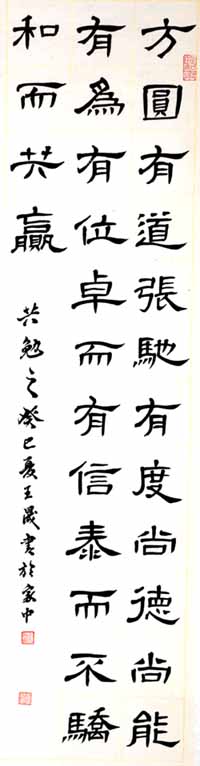 方圓有道張馳有度尚德尚能
有為有位卓而有信泰而不驕
和而共贏
共勉之癸巳夏王晟書於家中